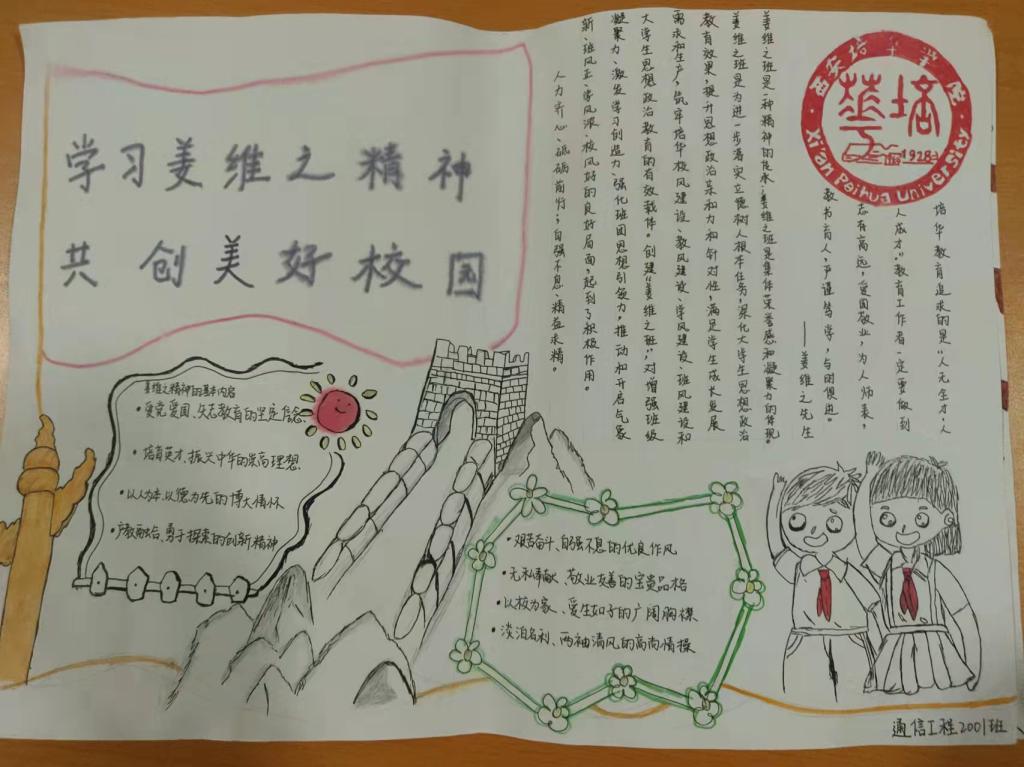 学习姜维之精神
共创美好校园
姜维之精神的基本内容
•爱党爱国、矢志教育的坚定信念
•培育英才、振兴中华的崇高理想
•以人为本、以德为先的博大情怀
•产教融合、勇于探索的创新精神
•艰苦奋斗、自强不息的优良作风
•无私奉献、敬业友善的宝贵品格
•以校为家、爱生如子的广阔胸襟
•淡泊名利、两袖清风的高尚情操
西安培华学院
培华
1928
Xi'an Peihua University
培华教育追求的是“人人无生才,人
人成才”。教育工作者一定要做到
志存高远,爱国敬业,为人师表,
教书育人,严谨笃学,与时俱进。
——姜维之先生
姜维之班是一种精神的传承;姜维之班是集体荣誉感和凝聚力的体现。
姜维之班是为进一步落实立德树人根本任务,深化大学生思想政治
教育效果,提升思想政治亲和力和针对性,满足学生成长发展
需求和生产,筑牢培华校风建设、教风建设、学风建设、班风建设和
大学生思想政治教育的有效载体。创建“姜维之班”,对增强班级
凝聚力、激发学习创造力、强化班团思想引领力,推动和开启气象
新、班风正、学风浓、校风好的良好局面,起到了积极作用。
人力齐心、砥砺前行;自强不息、精益求精。
通信工程2001班